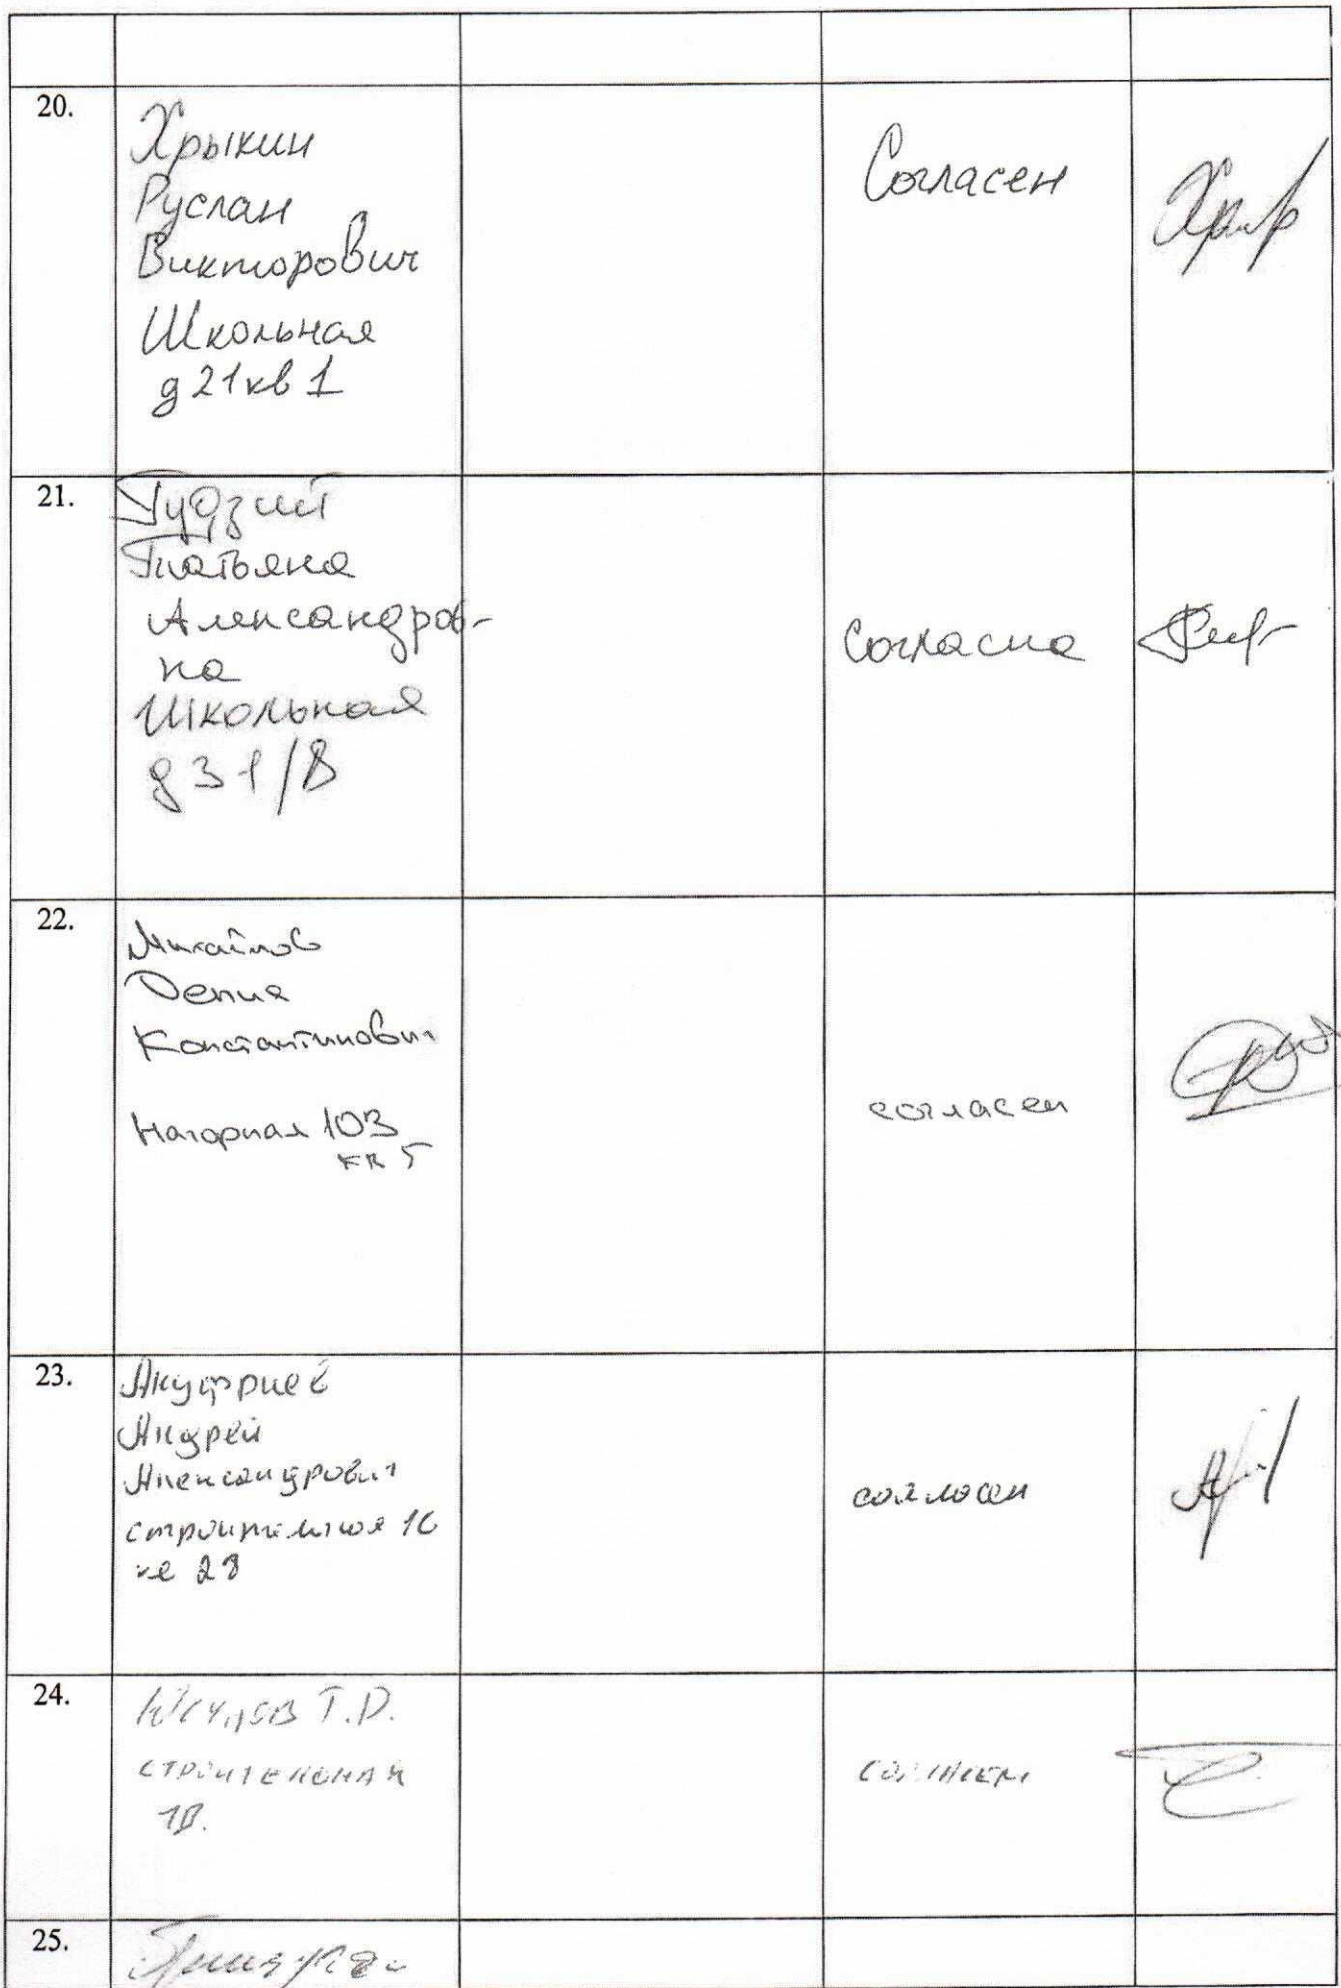 20.
Хрыкин
Руслан
Викторович
Школьная
д 21 кв 1
Согласен
21.
Гудзий
Татьяна
Александров-
на
Школьная
д 31/В
Согласна
22.
Михайлов
Денис
Константинович
Нагорная 103
кв 5
согласен
23.
Андрей
Александрович
строительная
согласен
24.
Т.Д.
строительная
согласен
25.